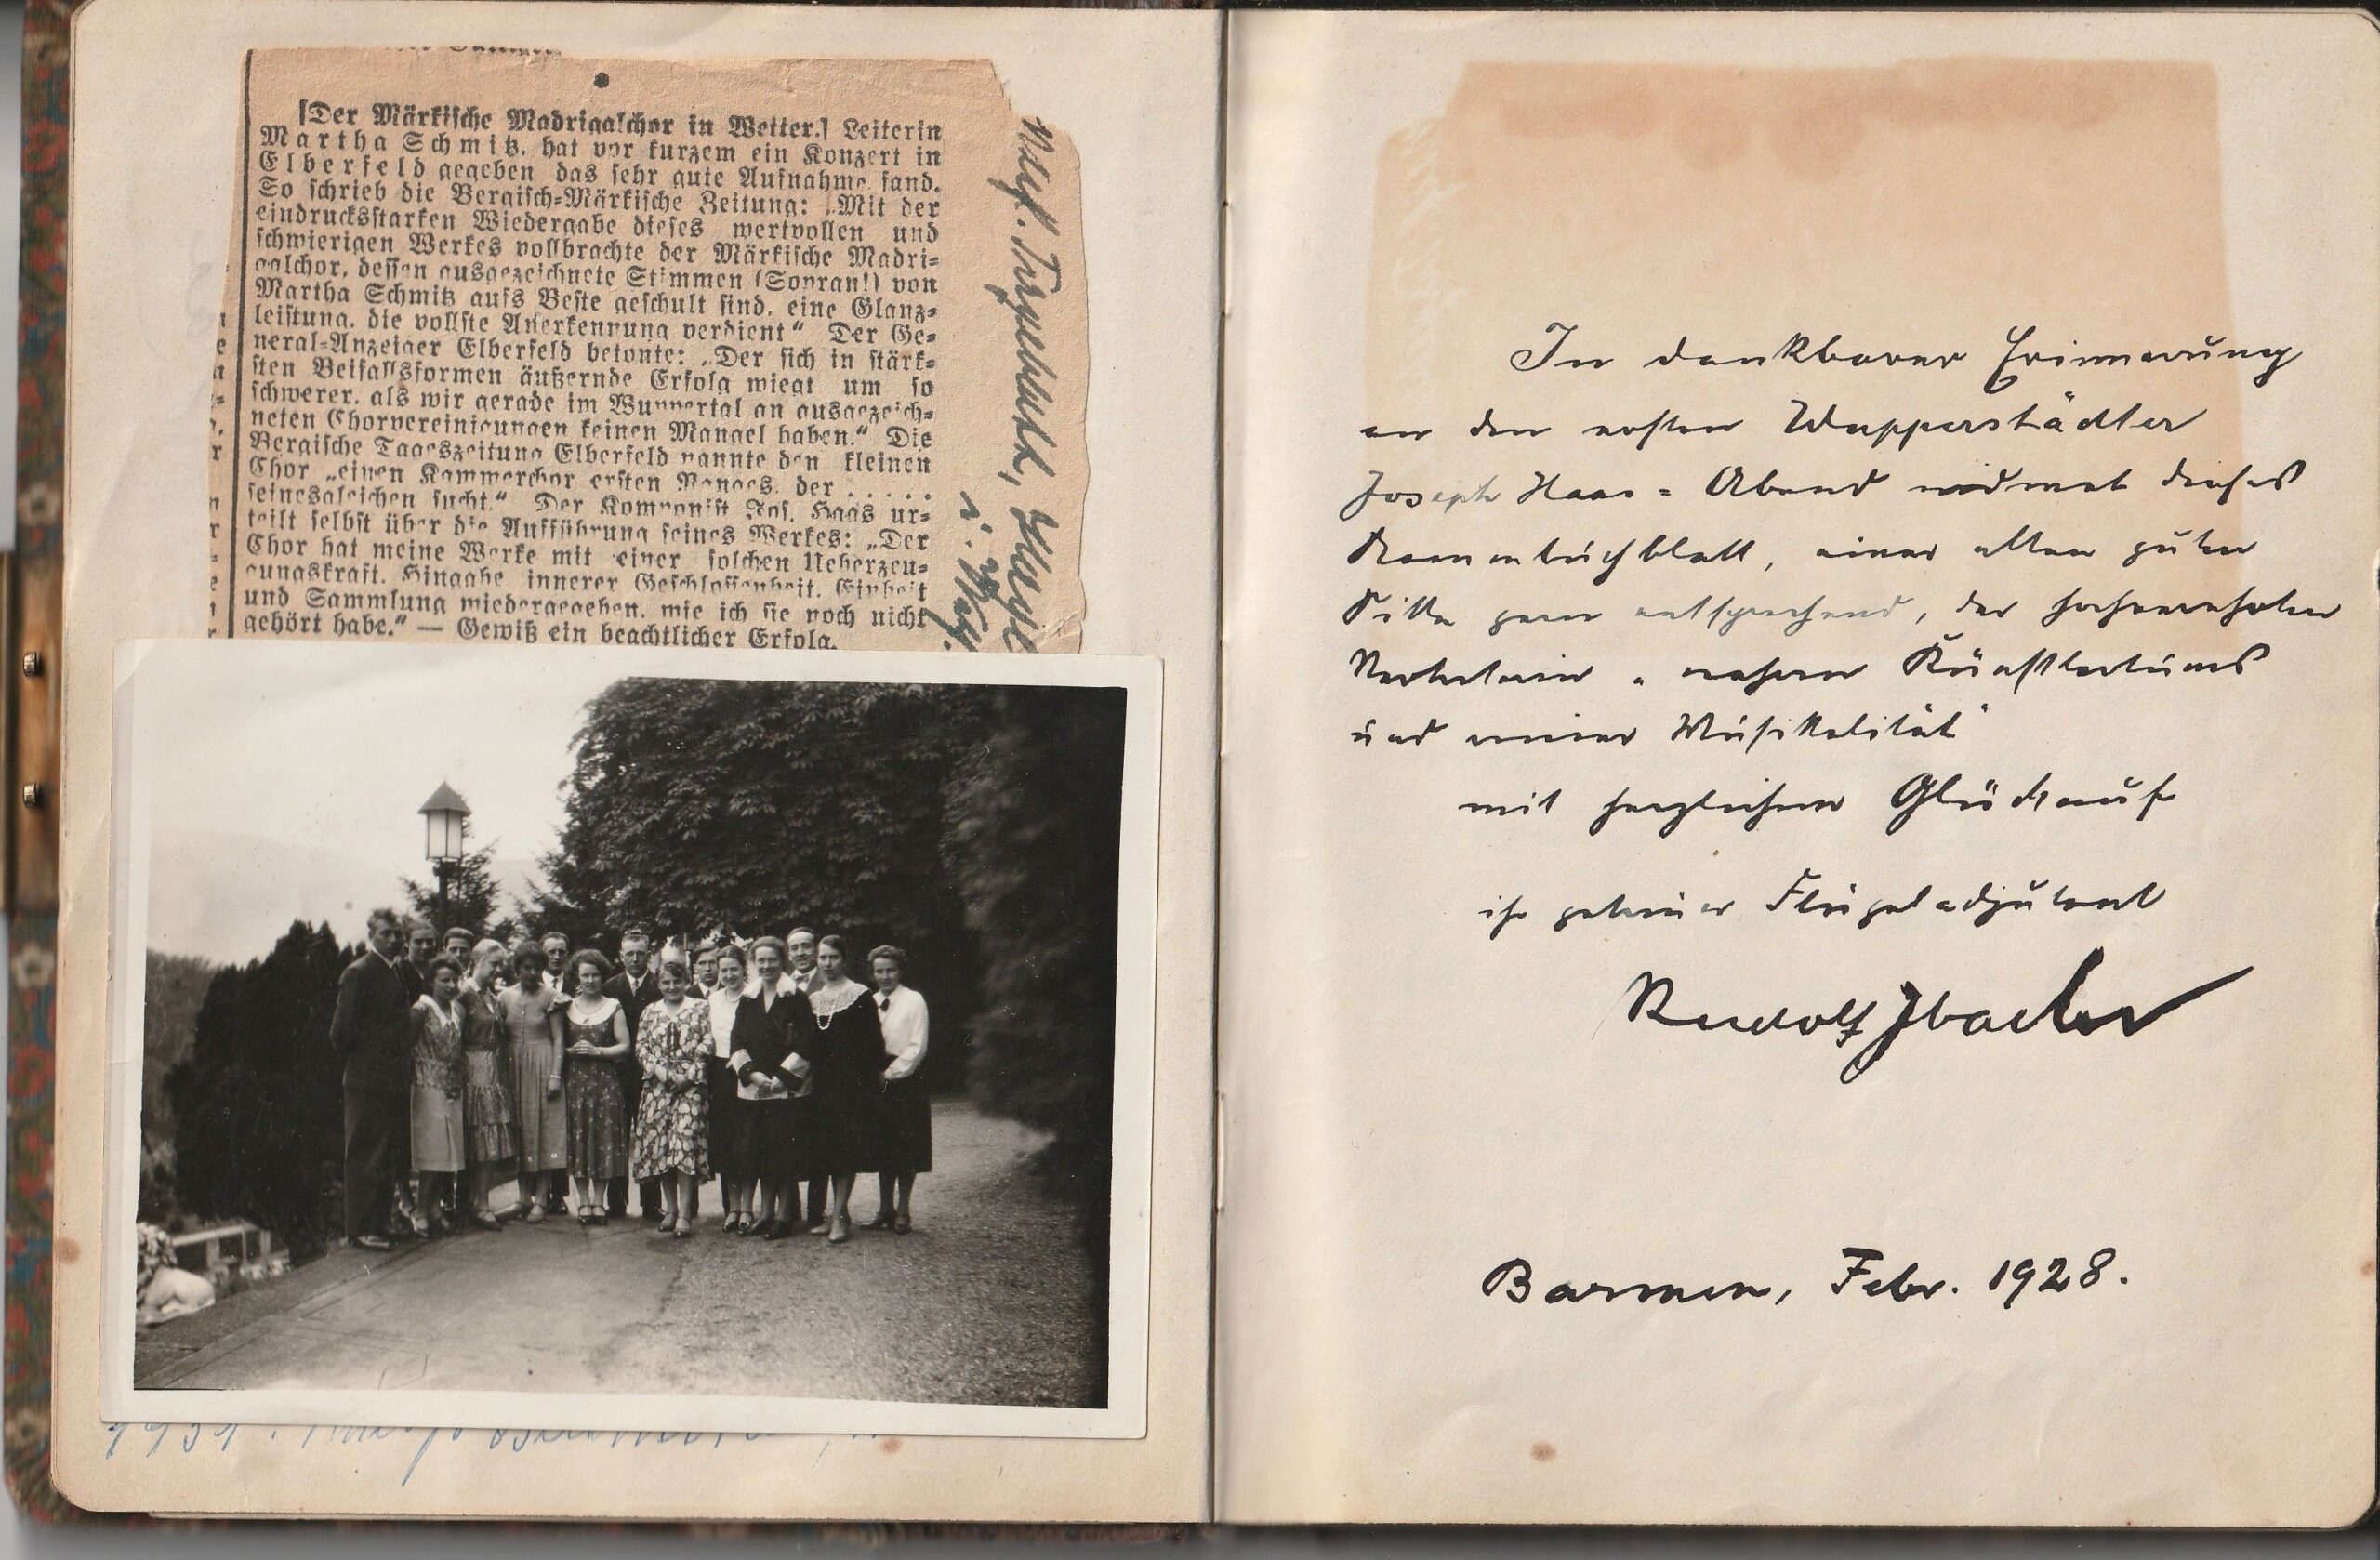 [Der Märkische Madrigalchor in Wetter.] Leiterin
Martha Schmitz, hat vor kurzem ein Konzert in
Elberfeld gegeben das sehr gute Aufnahme fand.
So schrieb die Bergisch-Märkische Zeitung: „Mit der
eindrucksstarken Wiedergabe dieses wertvollen und
schwierigen Werkes vollbrachte der Märkische Madri-
galchor, dessen ausgezeichnete Stimmen (Sopran!) von
Martha Schmitz aufs Beste geschult sind, eine Glanz-
leistung, die vollste Anerkennung verdient“ Der Ge-
neral-Anzeiger Elberfeld betonte: „Der sich in stärk-
sten Beifallsformen äußernde Erfolg wiegt um so
schwerer, als wir gerade im Wuppertal an ausgezeich-
neten Chorvereinigungen keinen Mangel haben.“ Die
Bergische Tageszeitung Elberfeld nannte den kleinen
Chor „einen Kammerchor ersten Ranges, der . . . . .
seinesgleichen sucht.“ Der Komponist Jos. Haas ur-
teilt selbst über die Aufführung seines Werkes: „Der
Chor hat meine Werke mit einer solchen Ueberzeu-
gungskraft, Hingabe innerer Geschlossenheit, Einheit
und Sammlung wiedergegeben, wie ich sie noch nicht
gehört habe.“ — Gewiß ein beachtlicher Erfolg.
Westf. Tageblatt, Hagen
i. Westf.
In dankbarer Erinnerung
an den ersten Wupperstädter
Joseph Haas-Abend widmet dieses
Stammbuchblatt, einer alten guten
Sitte gern entsprechend, der hochverehrten
Vertreterin wahren Künstlertums
und reiner Musikalität
mit herzlichem Glückauf
ihr getreuer Flügeladjutant
Rudolf Ibach
Barmen, Febr. 1928.